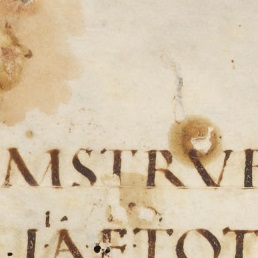 MSTRVE
IAETOT